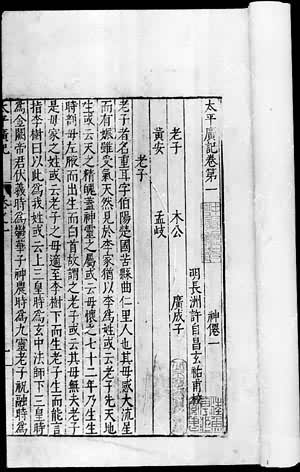 太平廣記卷第一　神僊一
明長洲許自昌玄祐甫校
老子　木公　廣成子
黃安　孟岐
老子
老子者名重耳字伯陽楚國苦縣曲仁里人也其母感大流星
而有娠雖受氣天然見於李家猶以李為姓或云老子先天地
生或云天之精魄蓋神靈之屬或云母懷之七十二年乃生生
時剖母左腋而出生而白首故謂之老子或云其母無夫老子
是母家之姓或云老子之母適至李樹下而生老子生而能言
指李樹曰以此為我姓或云上三皇時為玄中法師下三皇時
為金闕帝君伏羲時為鬱華子神農時為九靈老子祝融時為
太平廣記